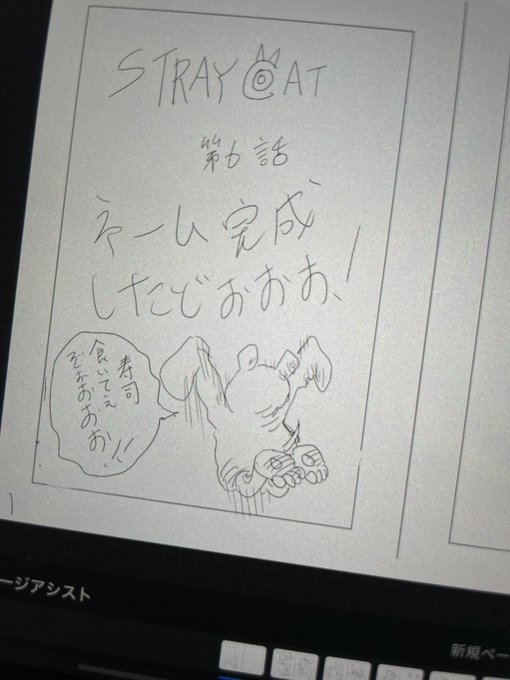 STRAY CAT
第6話
ネーム完成
したどぉぉぉ、!
寿司
食いてえ
ぞぉおおお!!
ージアシスト
新規ペー